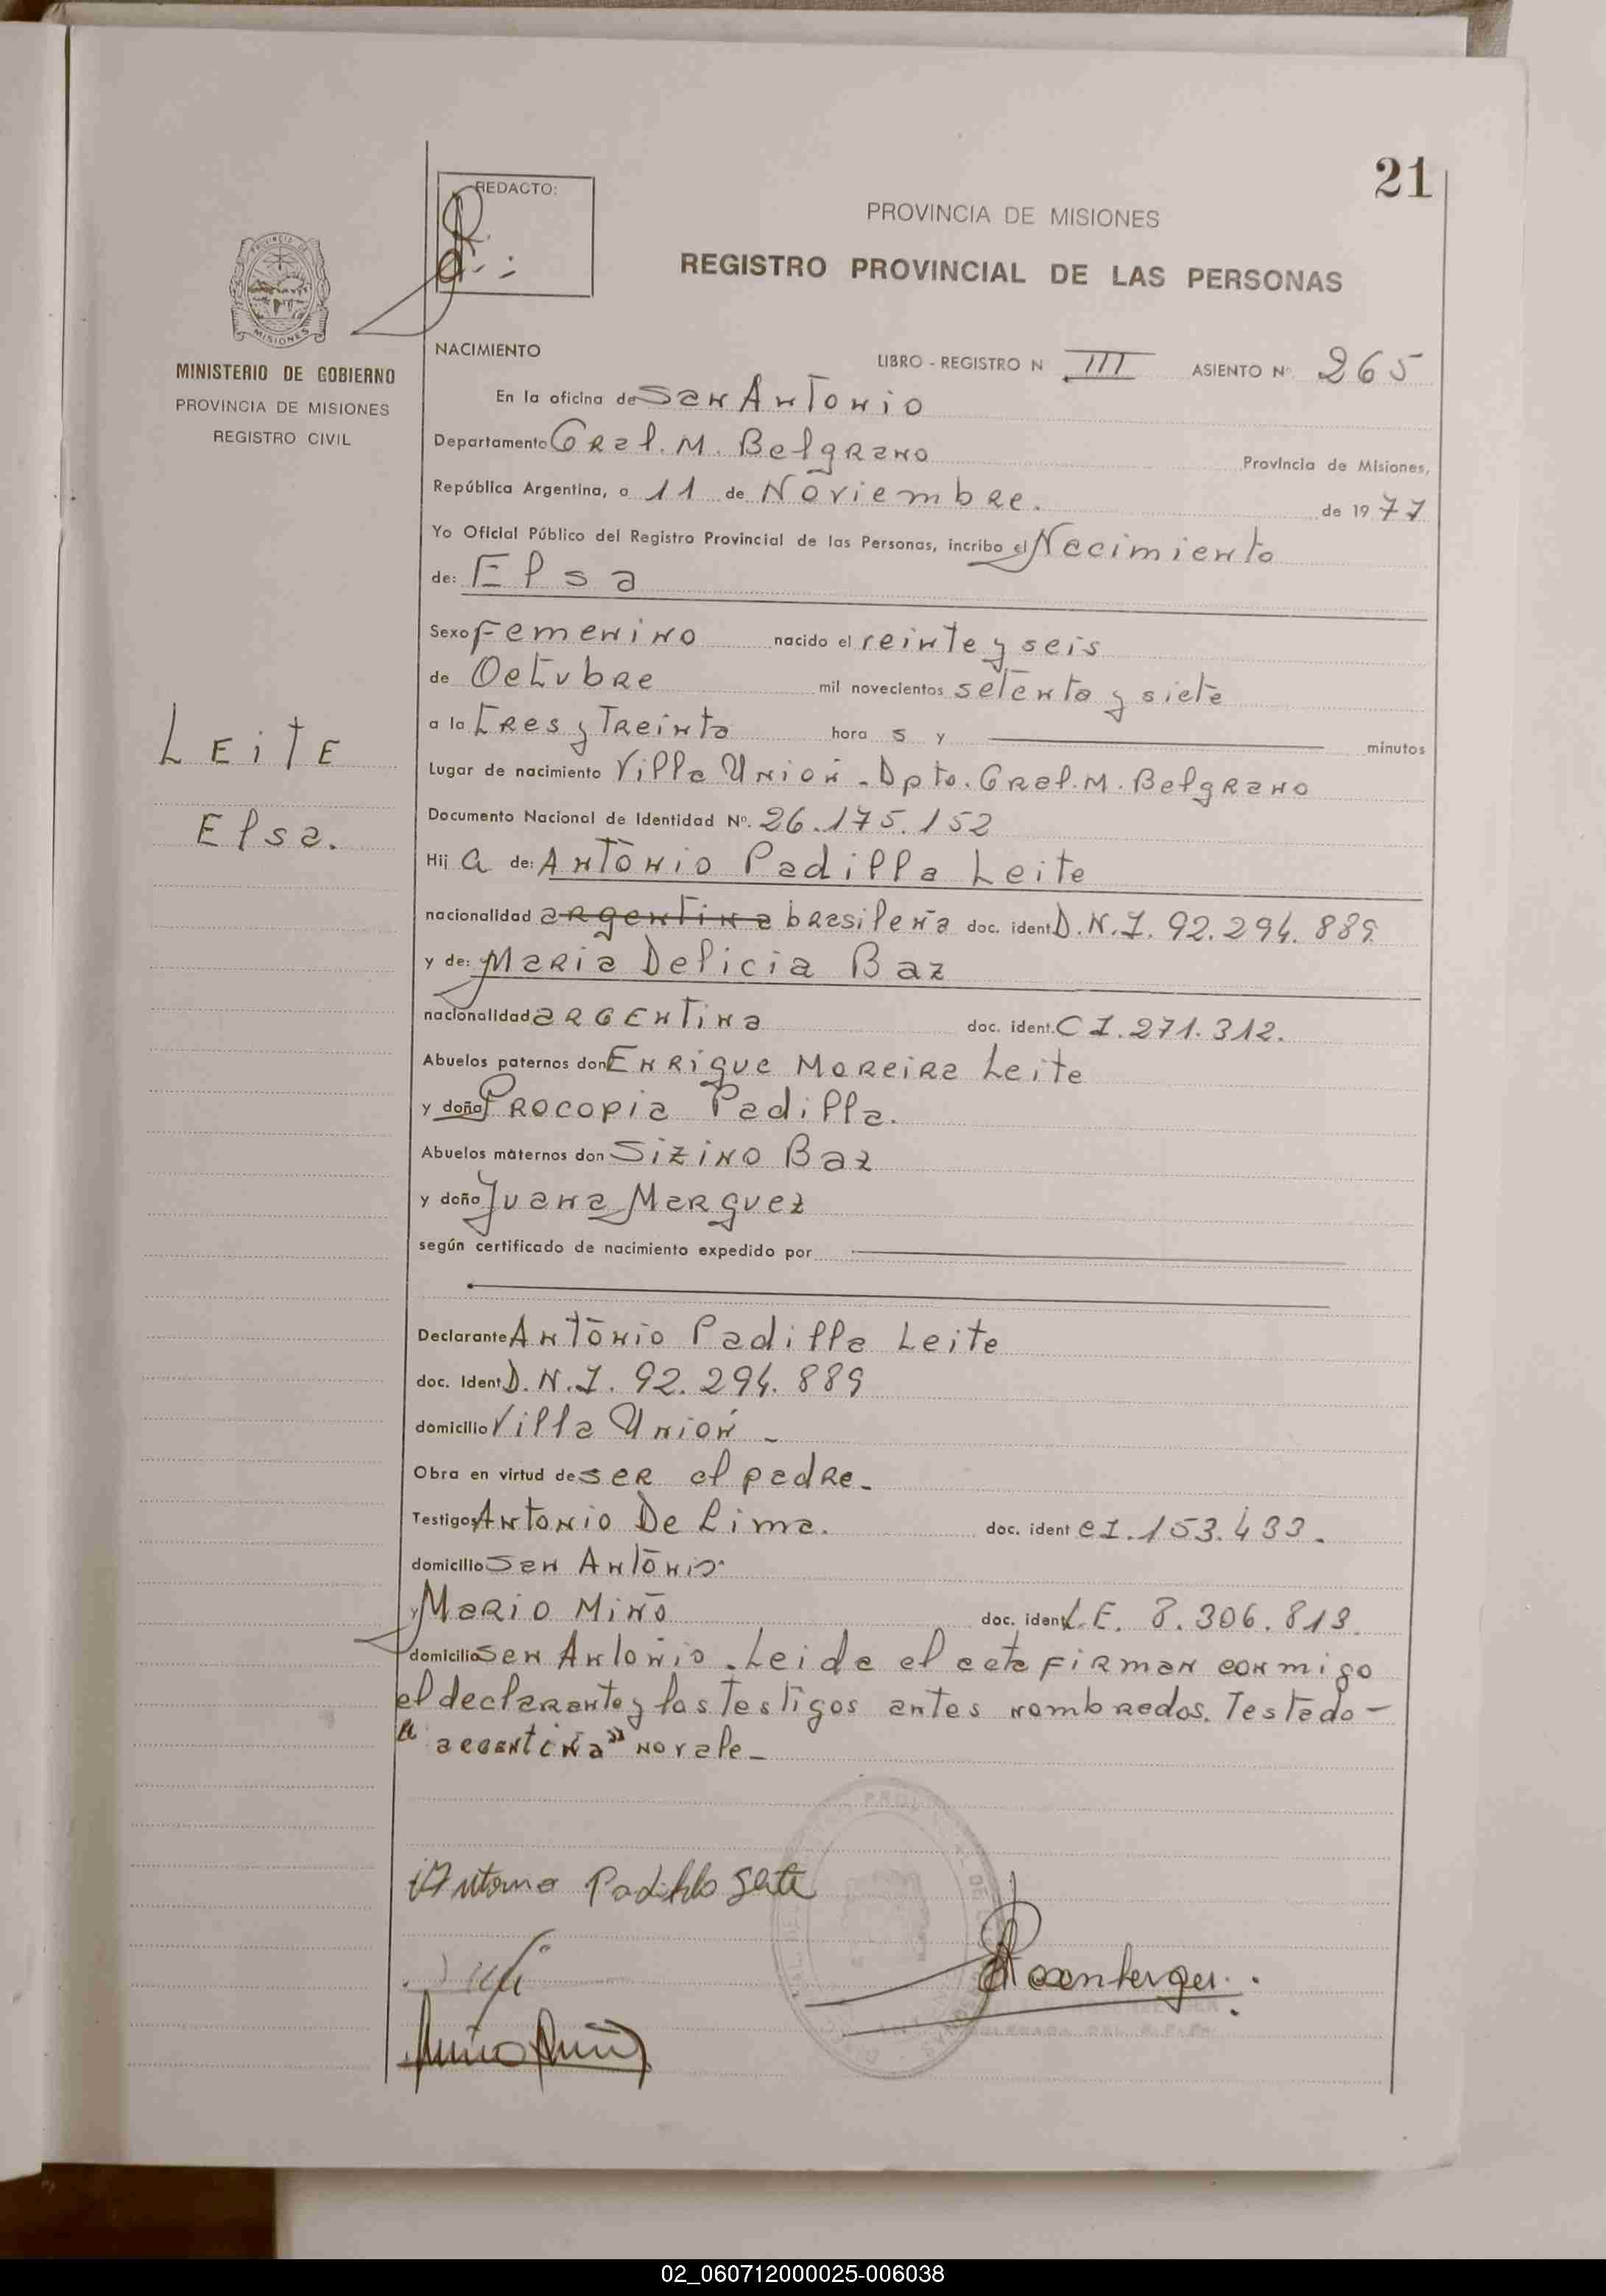 21
REDACTO:
PROVINCIA DE MISIONES
REGISTRO PROVINCIAL DE LAS PERSONAS
MISIONES
MINISTERIO DE GOBIERNO
PROVINCIA DE MISIONES
REGISTRO CIVIL
NACIMIENTO LIBRO - REGISTRO N III ASIENTO Nº 265
En la oficina de San Antonio
Departamento Gral. M. Belgrano Provincia de Misiones,
República Argentina, a 11 de Noviembre. de 1977
Yo Oficial Público del Registro Provincial de las Personas, incribo el Nacimiento
de: Elsa
Sexo Femenino nacido el veinte y seis
de Octubre mil novecientos setenta y siete
a la tres y treinta hora s y minutos
Leite
Lugar de nacimiento Villa Unión - Dpto. Gral. M. Belgrano
Elsa.
Documento Nacional de Identidad Nº. 26.175.152
Hij a de: Antonio Padilla Leite
nacionalidad argentina brasileña doc. ident. D.N.I. 92.294.889
y de: Maria Delicia Baz
nacionalidad argentina doc. ident. C I. 271.312.
Abuelos paternos don Enrique Moreira Leite
y doña Procopia Padilla.
Abuelos maternos don Sizino Baz
y doña Juana Marquez
según certificado de nacimiento expedido por
Declarante Antonio Padilla Leite
doc. Ident D.N.I. 92.294.889
domicilio Villa Unión -
Obra en virtud de ser el padre -
Testigos Antonio De Lima. doc. ident C I. 153.433.
domicilio San Antonio
y Mario Miño doc. ident L.E. 8.306.813.
domicilio San Antonio. Leida el acta firman conmigo
el declarante y los testigos antes nombrados. Testado -
"argentina" no vale -
Antonio Padilla Leite
Rosenberger